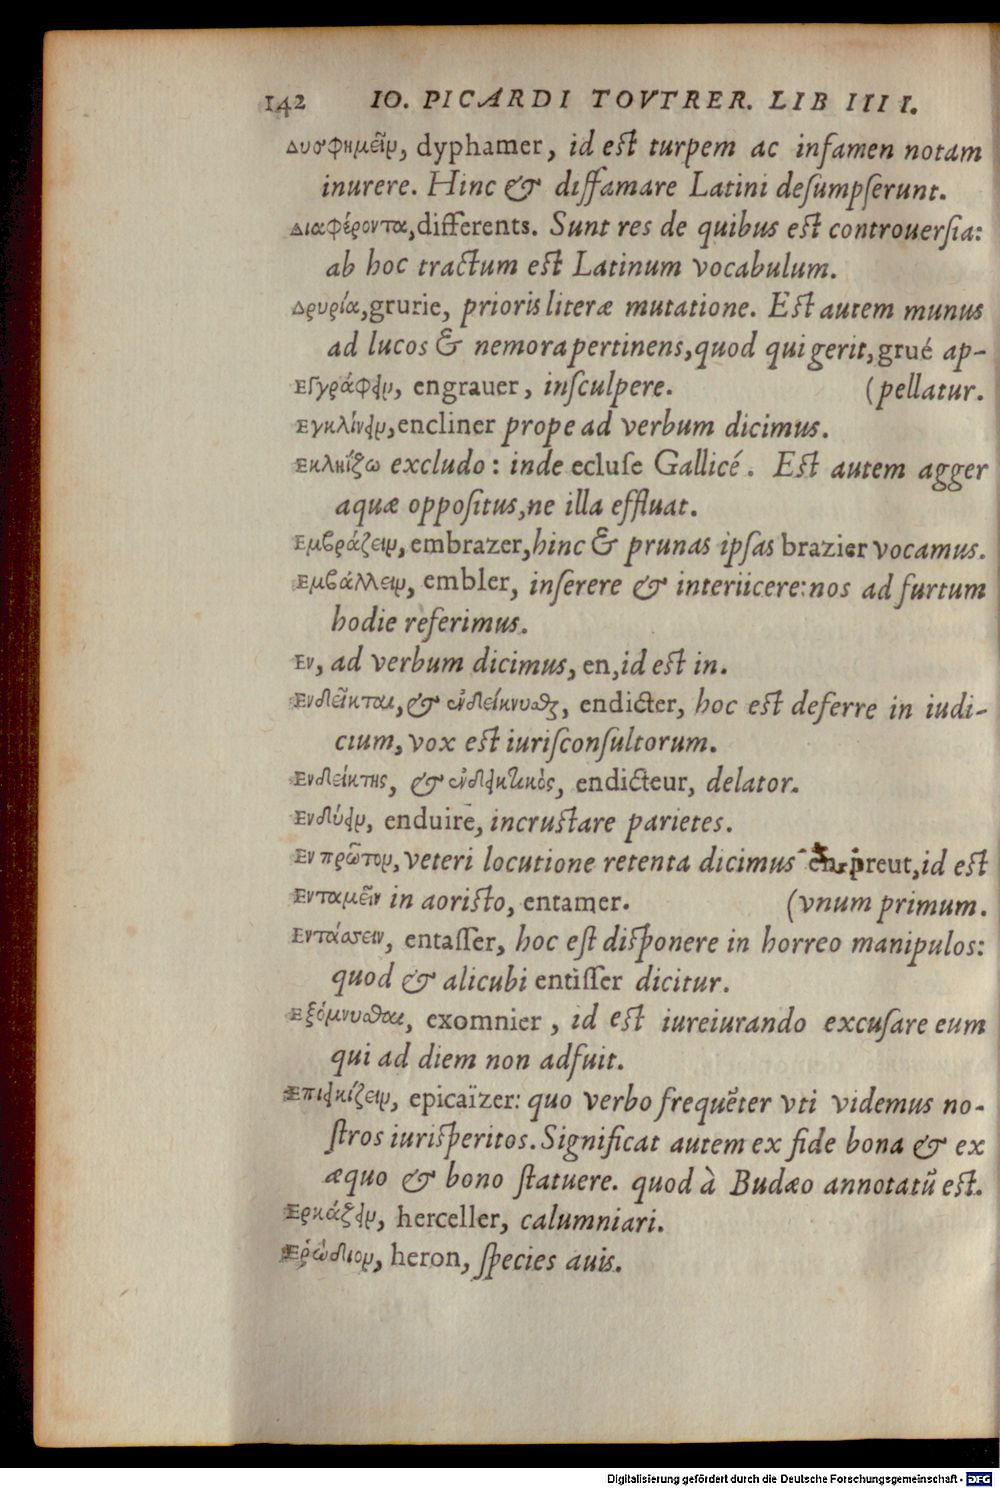 142 IO. PICARDI TOVTRER. LIB IIII.
Δυσφημεῖν, dyphamer, id est turpem ac infamen notam
inurere. Hinc & diffamare Latini desumpserunt.
Διαφέροντα, differents. Sunt res de quibus est controuersia:
ab hoc tractum est Latinum vocabulum.
Δρυρία, grurie, prioris literæ mutatione. Est autem munus
ad lucos & nemora pertinens, quod qui gerit, grué ap-
Εγγράφειν, engrauer, insculpere. (pellatur.
Εγκλίνειν, encliner prope ad verbum dicimus.
Εκληΐζω excludo: inde ecluse Gallicé. Est autem agger
aquæ oppositus, ne illa effluat.
Εμβράζειν, embrazer, hinc & prunas ipsas brazier vocamus.
Εμβάλλειν, embler, inserere & interiicere: nos ad furtum
hodie referimus.
Εν, ad verbum dicimus, en, id est in.
Ενδεῖκται, & ἐνδείκνυσθαι, endicter, hoc est deferre in iudi-
cium, vox est iurisconsultorum.
Ενδείκτης, & ἐνδεικτικὸς, endicteur, delator.
Ενδύειν, enduire, incrustare parietes.
Εν πρῶτον, veteri locutione retenta dicimus en preut, id est
Ενταμεῖν in aoristo, entamer. (vnum primum.
Εντάσσειν, entasser, hoc est disponere in horreo manipulos:
quod & alicubi entisser dicitur.
Εξόμνυσθαι, exomnier, id est iureiurando excusare eum
qui ad diem non adfuit.
Επιεικίζειν, epicaïzer: quo verbo frequẽter vti videmus no-
stros iurisperitos. Significat autem ex fide bona & ex
æquo & bono statuere. quod à Budæo annotatũ est.
Ερκάζειν, herceller, calumniari.
Ερώδιον, heron, species auis.
Digitalisierung gefördert durch die Deutsche Forschungsgemeinschaft - DFG